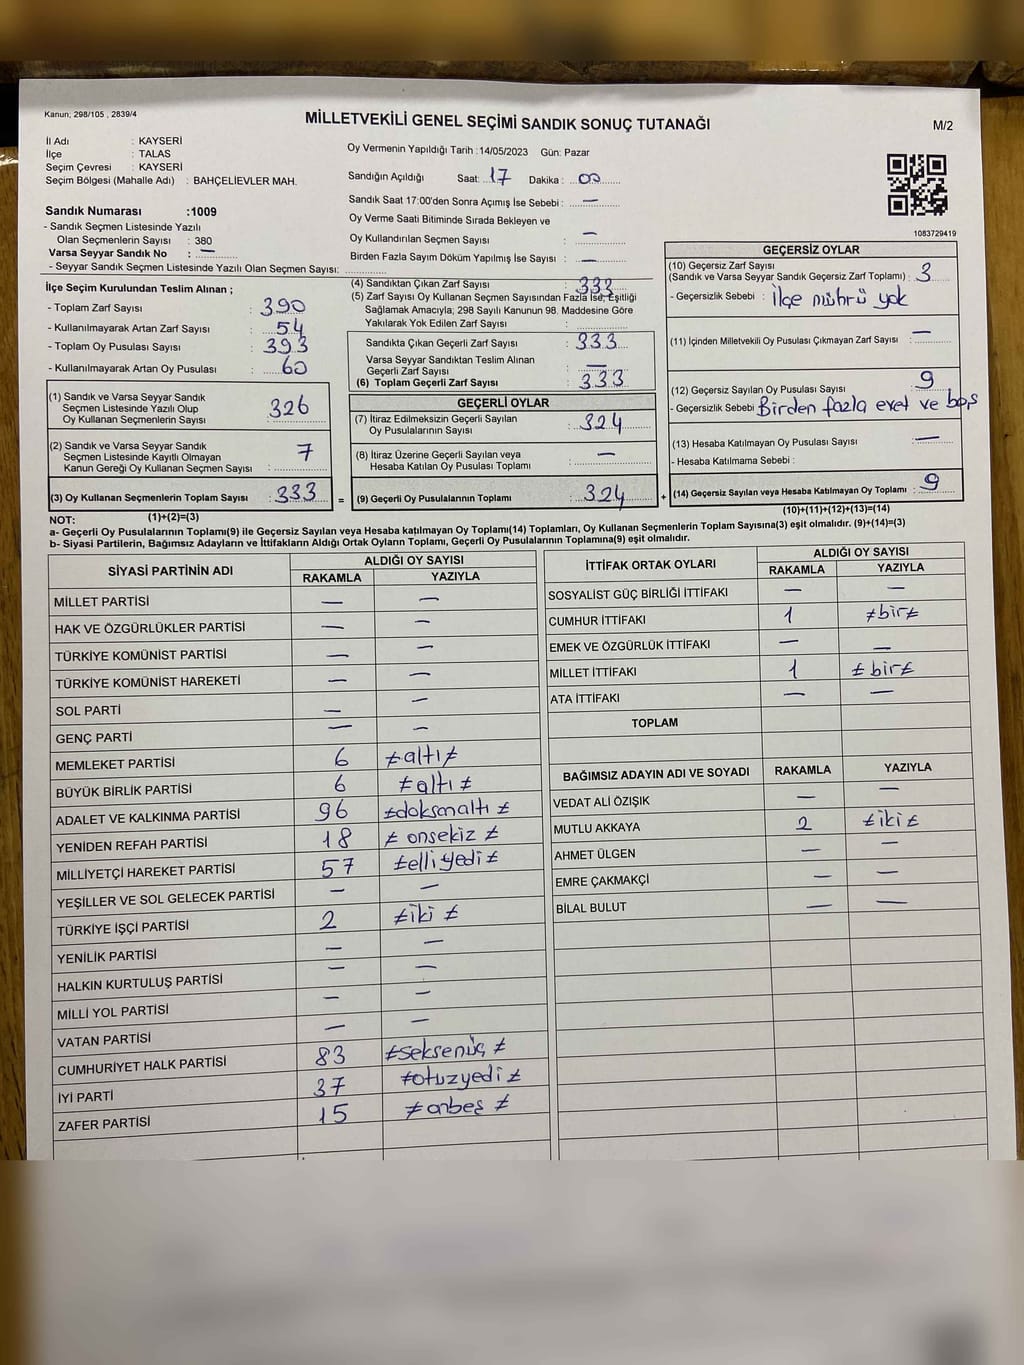 Kanun; 298/105 , 2839/4
MİLLETVEKİLİ GENEL SEÇİMİ SANDIK SONUÇ TUTANAĞI
M/2
İl Adı : KAYSERİ
İlçe : TALAS
Seçim Çevresi : KAYSERİ
Seçim Bölgesi (Mahalle Adı) : BAHÇELİEVLER MAH.
Sandık Numarası :1009
- Sandık Seçmen Listesinde Yazılı
Olan Seçmenlerin Sayısı : 380
Varsa Seyyar Sandık No : —
- Seyyar Sandık Seçmen Listesinde Yazılı Olan Seçmen Sayısı:
Oy Vermenin Yapıldığı Tarih :14/05/2023 Gün: Pazar
Sandığın Açıldığı Saat: 17 Dakika : 00
Sandık Saat 17:00'den Sonra Açımış İse Sebebi : —
Oy Verme Saati Bitiminde Sırada Bekleyen ve
Oy Kullandırılan Seçmen Sayısı : —
Birden Fazla Sayım Döküm Yapılmış İse Sayısı : —
1083729419
İlçe Seçim Kurulundan Teslim Alınan ;
- Toplam Zarf Sayısı : 390
- Kullanılmayarak Artan Zarf Sayısı : 54
- Toplam Oy Pusulası Sayısı : 393
- Kullanılmayarak Artan Oy Pusulası : 60
(1) Sandık ve Varsa Seyyar Sandık
Seçmen Listesinde Yazılı Olup
Oy Kullanan Seçmenlerin Sayısı : 326
(2) Sandık ve Varsa Seyyar Sandık
Seçmen Listesinde Kayıtlı Olmayan
Kanun Gereği Oy Kullanan Seçmen Sayısı : 7
(3) Oy Kullanan Seçmenlerin Toplam Sayısı : 333 =
(4) Sandıktan Çıkan Zarf Sayısı : 333
(5) Zarf Sayısı Oy Kullanan Seçmen Sayısından Fazla İse, Eşitliği
Sağlamak Amacıyla; 298 Sayılı Kanunun 98. Maddesine Göre
Yakılarak Yok Edilen Zarf Sayısı :
Sandıkta Çıkan Geçerli Zarf Sayısı : 333
Varsa Seyyar Sandıktan Teslim Alınan
Geçerli Zarf Sayısı : —
(6) Toplam Geçerli Zarf Sayısı : 333
GEÇERLİ OYLAR
(7) İtiraz Edilmeksizin Geçerli Sayılan
Oy Pusulalarının Sayısı : 324
(8) İtiraz Üzerine Geçerli Sayılan veya
Hesaba Katılan Oy Pusulası Toplamı : —
(9) Geçerli Oy Pusulalarının Toplamı : 324 +
GEÇERSİZ OYLAR
(10) Geçersiz Zarf Sayısı
(Sandık ve Varsa Seyyar Sandık Geçersiz Zarf Toplamı) : 3
- Geçersizlik Sebebi : İlçe mührü yok
(11) İçinden Milletvekili Oy Pusulası Çıkmayan Zarf Sayısı : —
(12) Geçersiz Sayılan Oy Pusulası Sayısı : 9
- Geçersizlik Sebebi Birden fazla evet ve boş
(13) Hesaba Katılmayan Oy Pusulası Sayısı : —
- Hesaba Katılmama Sebebi :
(14) Geçersiz Sayılan veya Hesaba Katılmayan Oy Toplamı : 9
NOT: (1)+(2)=(3)
(10)+(11)+(12)+(13)=(14)
a- Geçerli Oy Pusulalarının Toplamı(9) ile Geçersiz Sayılan veya Hesaba katılmayan Oy Toplamı(14) Toplamları, Oy Kullanan Seçmenlerin Toplam Sayısına(3) eşit olmalıdır. (9)+(14)=(3)
b- Siyasi Partilerin, Bağımsız Adayların ve İttifakların Aldığı Ortak Oyların Toplamı, Geçerli Oy Pusulalarının Toplamına(9) eşit olmalıdır.
SİYASİ PARTİNİN ADI ALDIĞI OY SAYISI
RAKAMLA YAZIYLA
MİLLET PARTİSİ — —
HAK VE ÖZGÜRLÜKLER PARTİSİ — —
TÜRKİYE KOMÜNİST PARTİSİ — —
TÜRKİYE KOMÜNİST HAREKETİ — —
SOL PARTİ — —
GENÇ PARTİ — —
MEMLEKET PARTİSİ 6 ≠altı≠
BÜYÜK BİRLİK PARTİSİ 6 ≠altı≠
ADALET VE KALKINMA PARTİSİ 96 ≠doksanaltı≠
YENİDEN REFAH PARTİSİ 18 ≠onsekiz≠
MİLLİYETÇİ HAREKET PARTİSİ 57 ≠elliyedi≠
YEŞİLLER VE SOL GELECEK PARTİSİ — —
TÜRKİYE İŞÇİ PARTİSİ 2 ≠iki≠
YENİLİK PARTİSİ — —
HALKIN KURTULUŞ PARTİSİ — —
MİLLİ YOL PARTİSİ — —
VATAN PARTİSİ — —
CUMHURİYET HALK PARTİSİ 83 ≠seksenüç≠
İYİ PARTİ 37 ≠otuzyedi≠
ZAFER PARTİSİ 15 ≠onbeş≠
İTTİFAK ORTAK OYLARI ALDIĞI OY SAYISI
RAKAMLA YAZIYLA
SOSYALİST GÜÇ BİRLİĞİ İTTİFAKI — —
CUMHUR İTTİFAKI 1 ≠bir≠
EMEK VE ÖZGÜRLÜK İTTİFAKI — —
MİLLET İTTİFAKI 1 ≠bir≠
ATA İTTİFAKI — —
TOPLAM
BAĞIMSIZ ADAYIN ADI VE SOYADI RAKAMLA YAZIYLA
VEDAT ALİ ÖZIŞIK — —
MUTLU AKKAYA 2 ≠iki≠
AHMET ÜLGEN — —
EMRE ÇAKMAKÇİ — —
BİLAL BULUT — —